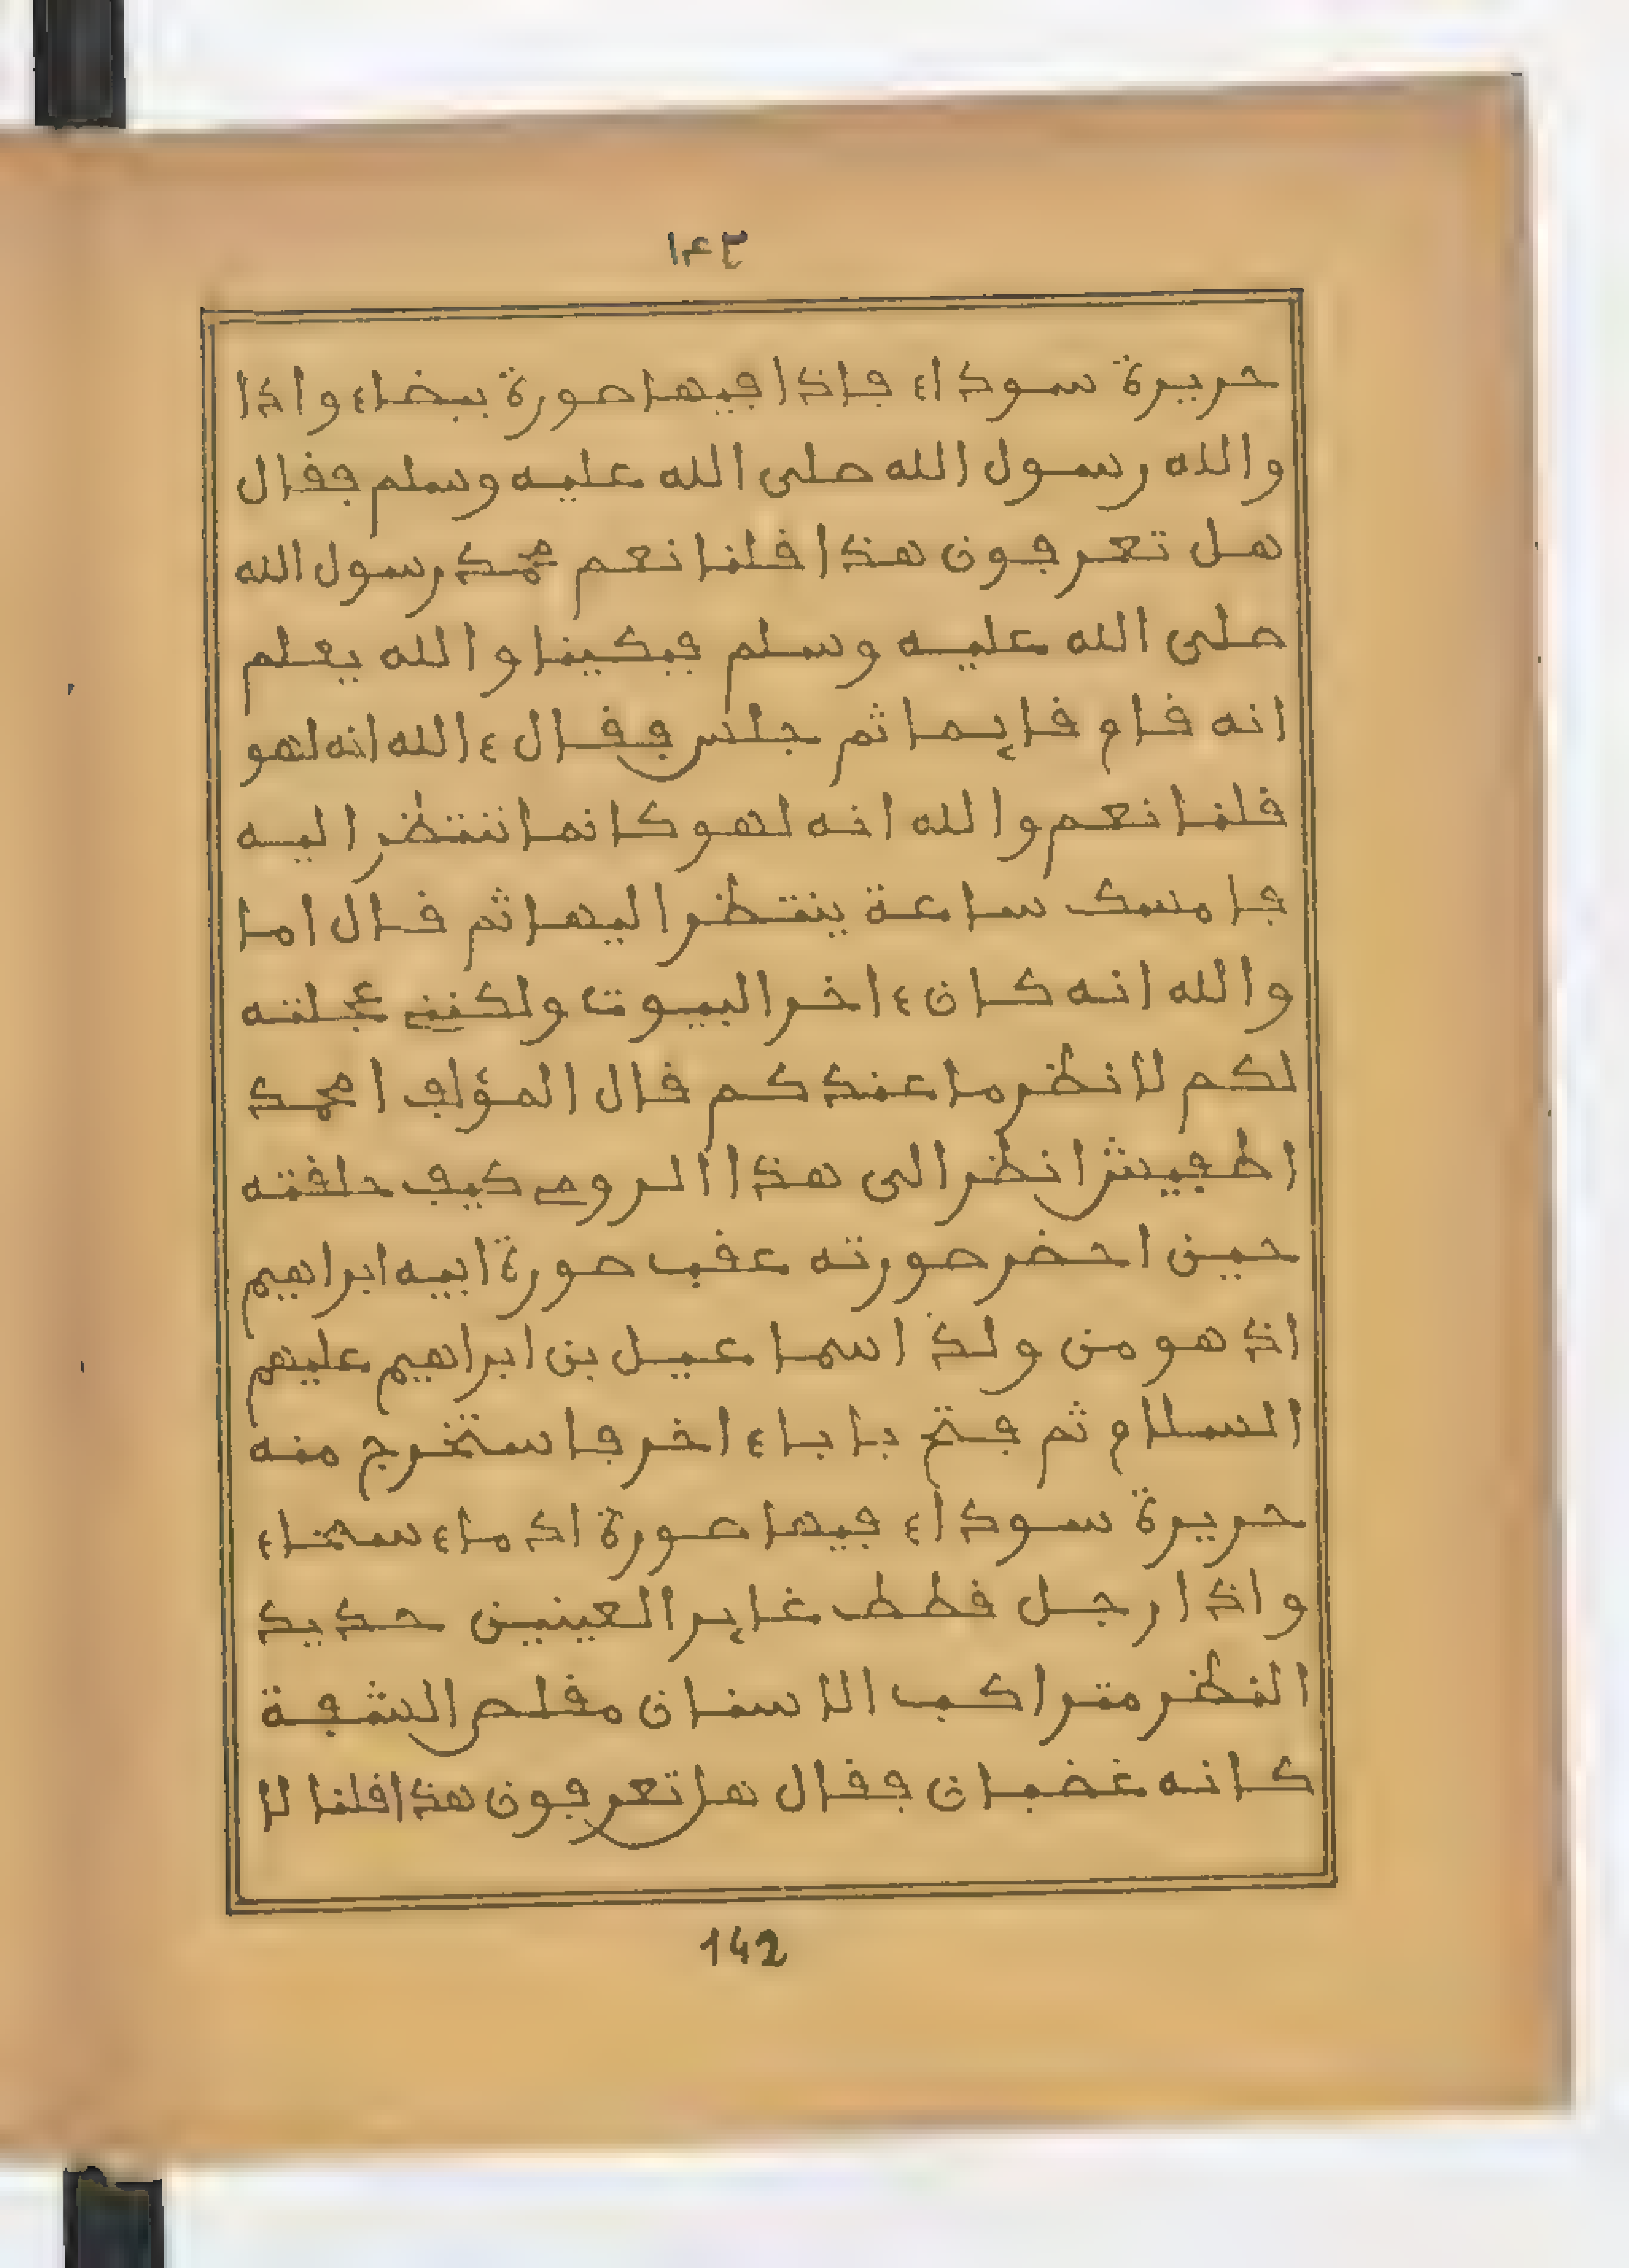 ١٤٣
حريرة سوداء فإذا فيها صورة بيضاء وإذا
والله رسول الله صلى الله عليه وسلم فقال
هل تعرفون هذا قلنا نعم محمد رسول الله
صلى الله عليه وسلم فبكينا والله يعلم
انه قام قايما ثم جلس فقال ءالله انه لهو
قلنا نعم والله انه لهو كانما ننتظر اليه
فامسك ساعة ينتظر اليها ثم قال اما
والله انه كان ءاخر البيوت ولكنني عجلته
لكم لانظر ما عندكم قال المؤلف امحمد
اطفيش انظر الى هذا الرومي كيف حلفته
حين احضر صورته عقب صورة ابيه ابراهيم
اذ هو من ولد اسماعيل بن ابراهيم عليهم
السلام ثم فتح بابا ءاخر فاستخرج منه
حريرة سوداء فيها صورة ادماء سحناء
واذا رجل قطط غاير العينين حديد
النظر متراكب الاسنان مقلص الشفة
كانه غضبان فقال هل تعرفون هذا قلنا لا
142